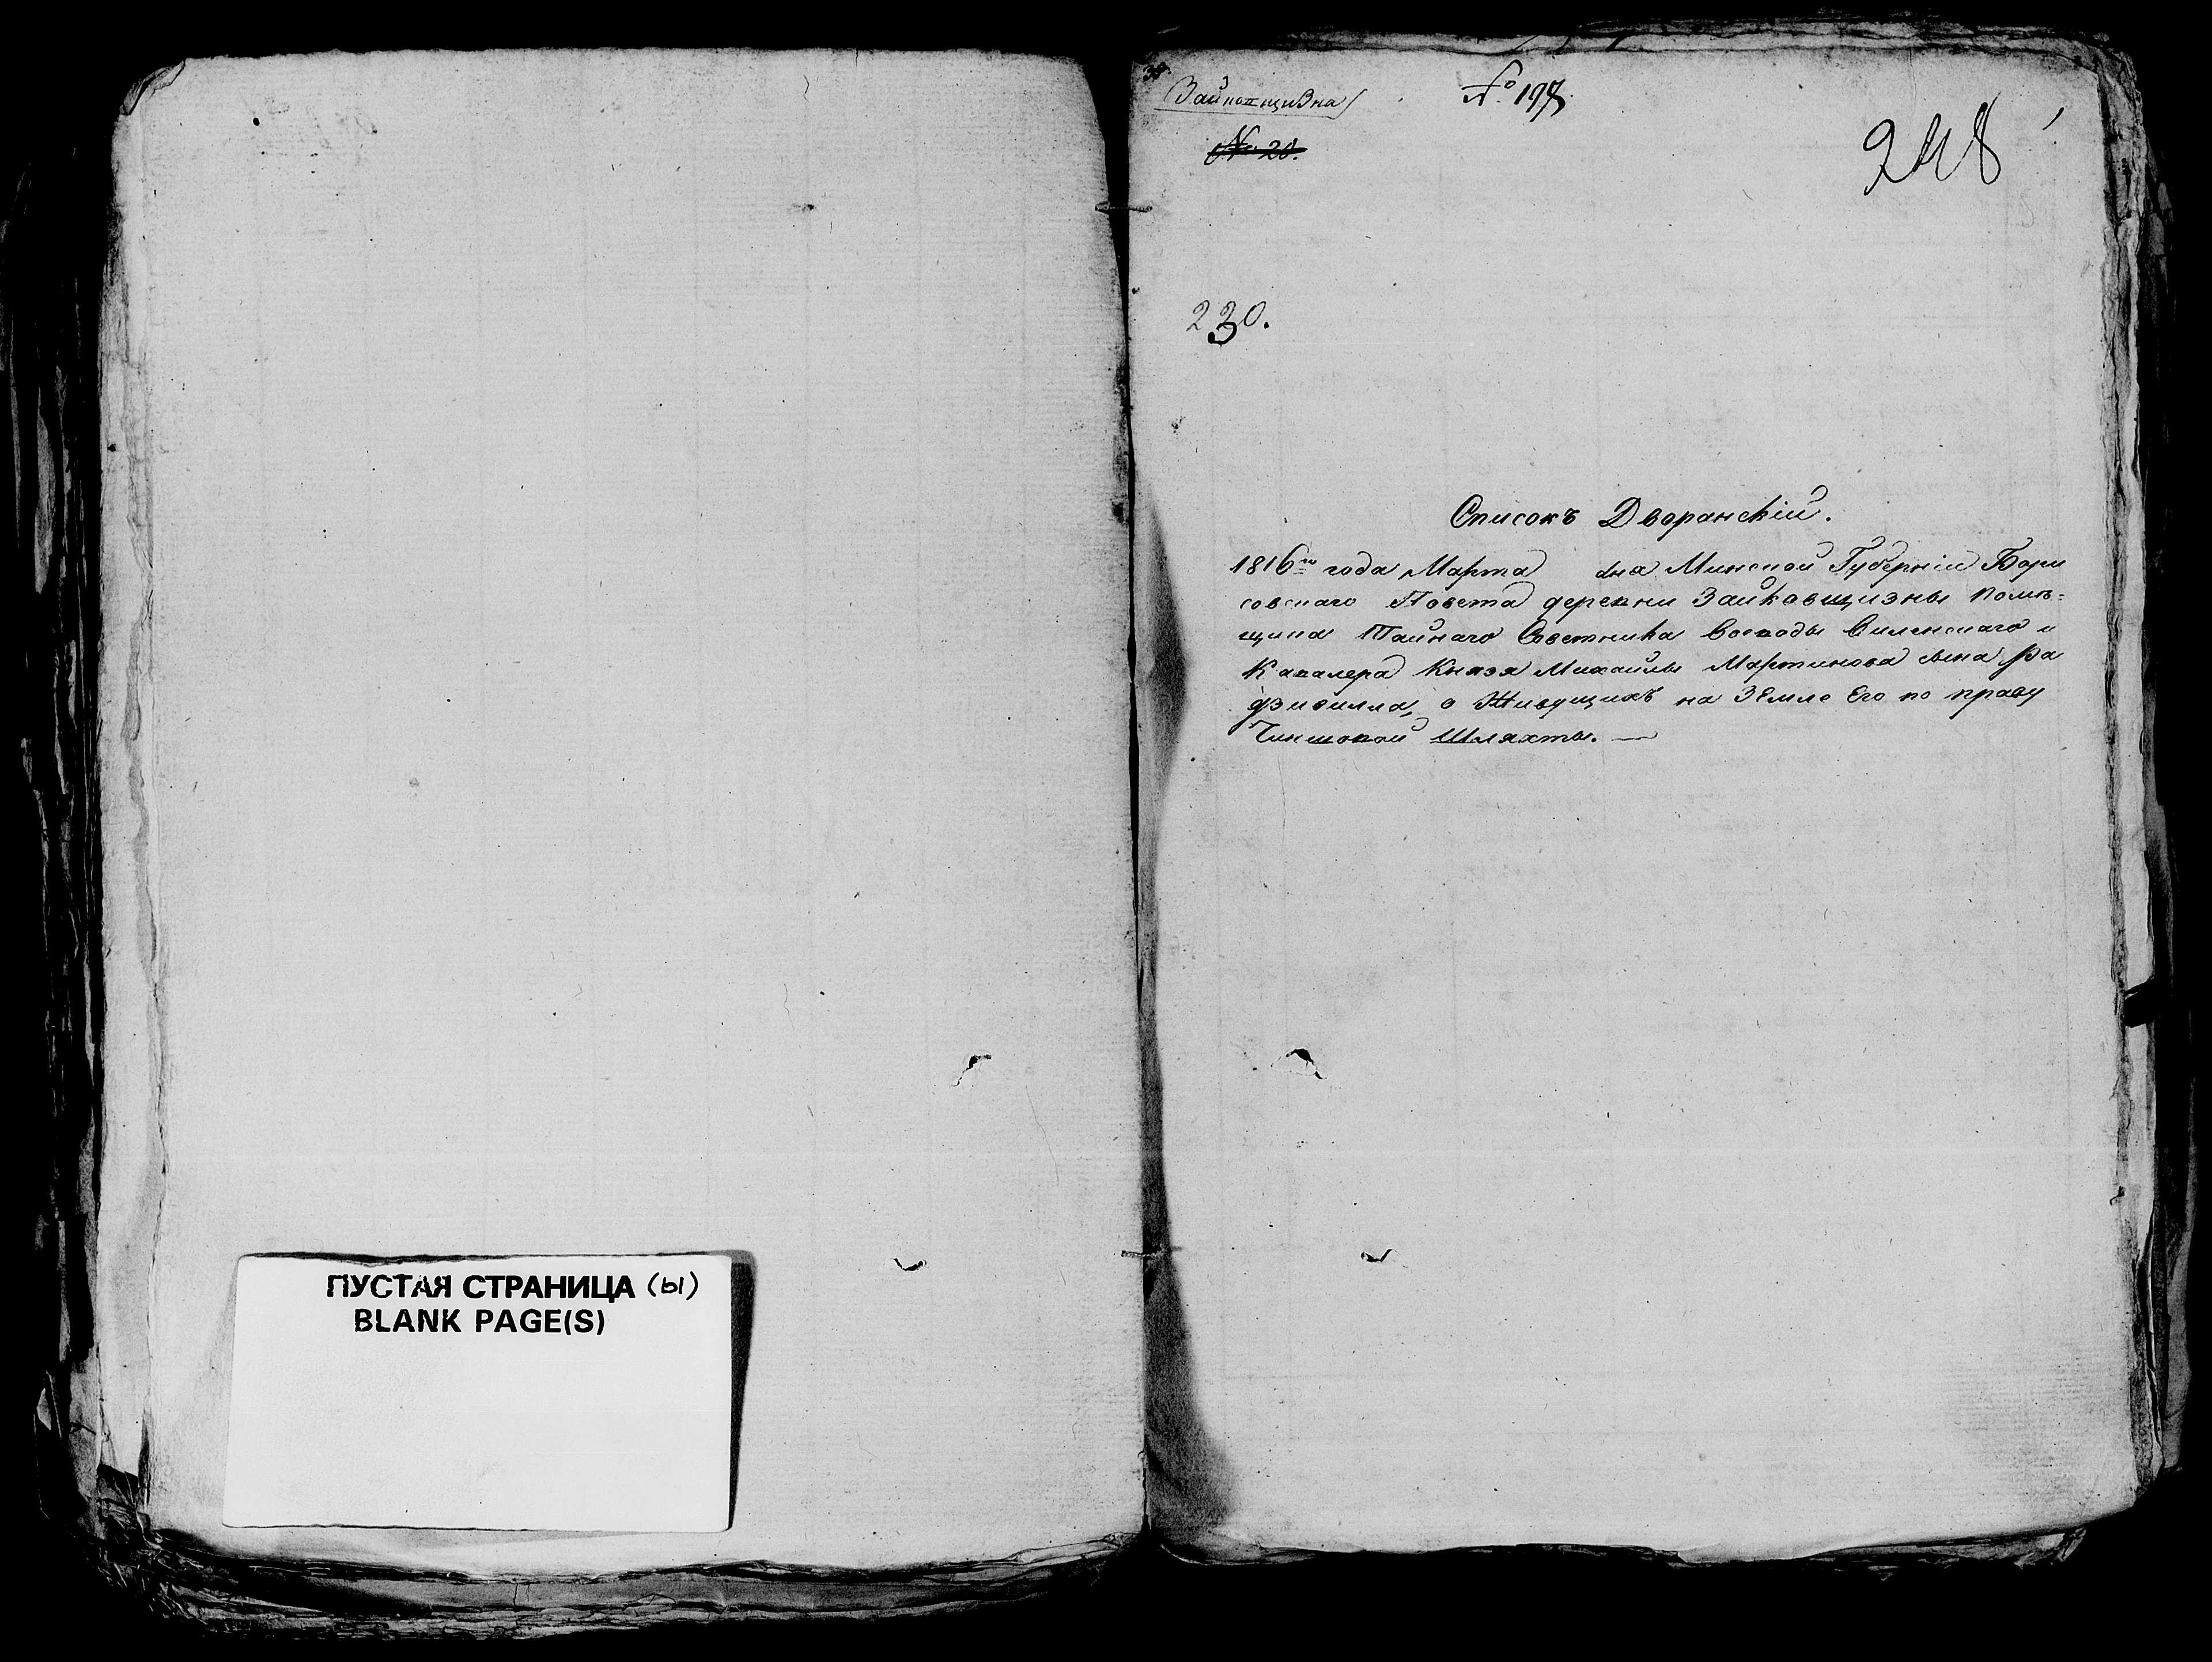 ПУСТАЯ СТРАНИЦА (ы)
BLANK PAGE(S)
Зайковщизна
№ 197
№ 20.
248
230.
Списокъ Дворанскій.
1816го года Марта дня Минской Губерніи Бори
совскаго Повета деревни Зайковщизны помѣ=
щика Тайнаго Советника Воеводы Виленскаго и
Кавалера Князя Михайлы Мартинова сына Ра
дзивилла, о Живущихъ на Земле Его по праву
Чиншовой Шляхты. —